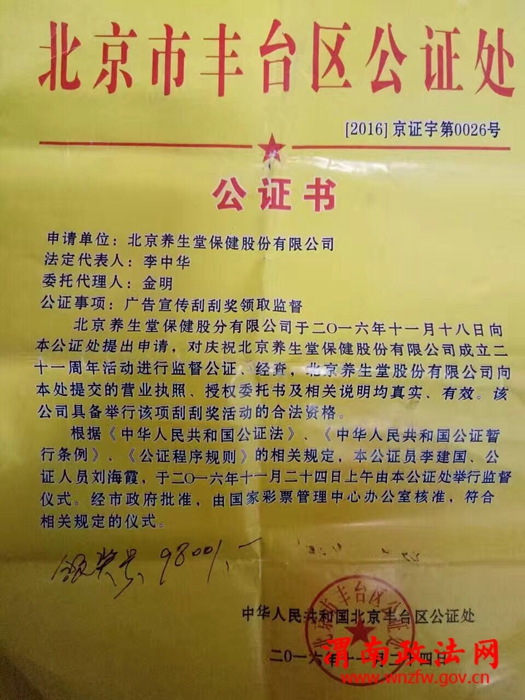 北京市丰台区公证处
[2016]京证字第0026号
公证书
申请单位：北京养生堂保健股份有限公司
法定代表人：李中华
委托代理人：金明
公证事项：广告宣传刮刮奖领取监督
北京养生堂保健股分有限公司于二〇一六年十一月十八日向
本公证处提出申请，对庆祝北京养生堂保健股份有限公司成立二
十一周年活动进行监督公证、经查，北京养生堂股份有限公司向
本处提交的营业执照、授权委托书及相关说明均真实、有效。该
公司具备举行该项刮刮奖活动的合法资格。
根据《中华人民共和国公证法》、《中华人民共和国公证暂
行条例》、《公证程序规则》的相关规定，本公证员李建国、公
证人员刘海霞，于二〇一六年十一月二十四日上午由本公证处举行监督
仪式。经市政府批准，由国家彩票管理中心办公室核准，符合
相关规定的仪式。
9800
中华人民共和国北京丰台区公证处
北京市丰台区公证处
二〇一六年十一月二十四日
渭南政法网
www.wnzfw.gov.cn